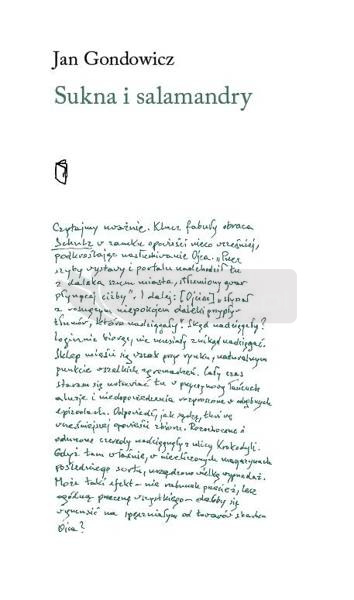 Jan Gondowicz
Sukna i salamandry
Czytajmy uważnie. Klucz fabuły obraca
Schulz w zamku opowieści nieco wcześniej,
podkreślając nasłuchiwanie Ojca. „Przez
szyby wystawy i portalu nadchodził tu
z daleka szum miasta, stłumiony gwar
płynącej ciżby". I dalej: [Ojciec] „słuchał
z rosnącym niepokojem dalekiego przypływu
tłumów, które nadciągały". Skąd nadciągały?
Logicznie biorąc, nie musiały znikąd nadciągać.
Sklep mieści się wszak przy rynku, naturalnym
punkcie wszelkich zgromadzeń. Cały czas
staram się ustawiać tu w przyczynowy łańcuch
aluzje i niedopowiedzenia rozproszone w odrębnych
epizodach. Odpowiedź, jak sądzę, tkwi we
wcześniejszej opowieści zbioru. Rozochocone i
odurzone czeredy nadciągnęły z ulicy Krokodyli.
Gdyż tam właśnie, w niezliczonych magazynach
pośledniego sortu, urządzono wielką wyprzedaż.
Może taki efekt – nie rabunek przecież, lecz
ogólną przecenę wszystkiego – dałoby się
wymusić na spęczniałym od towarów składzie
Ojca?